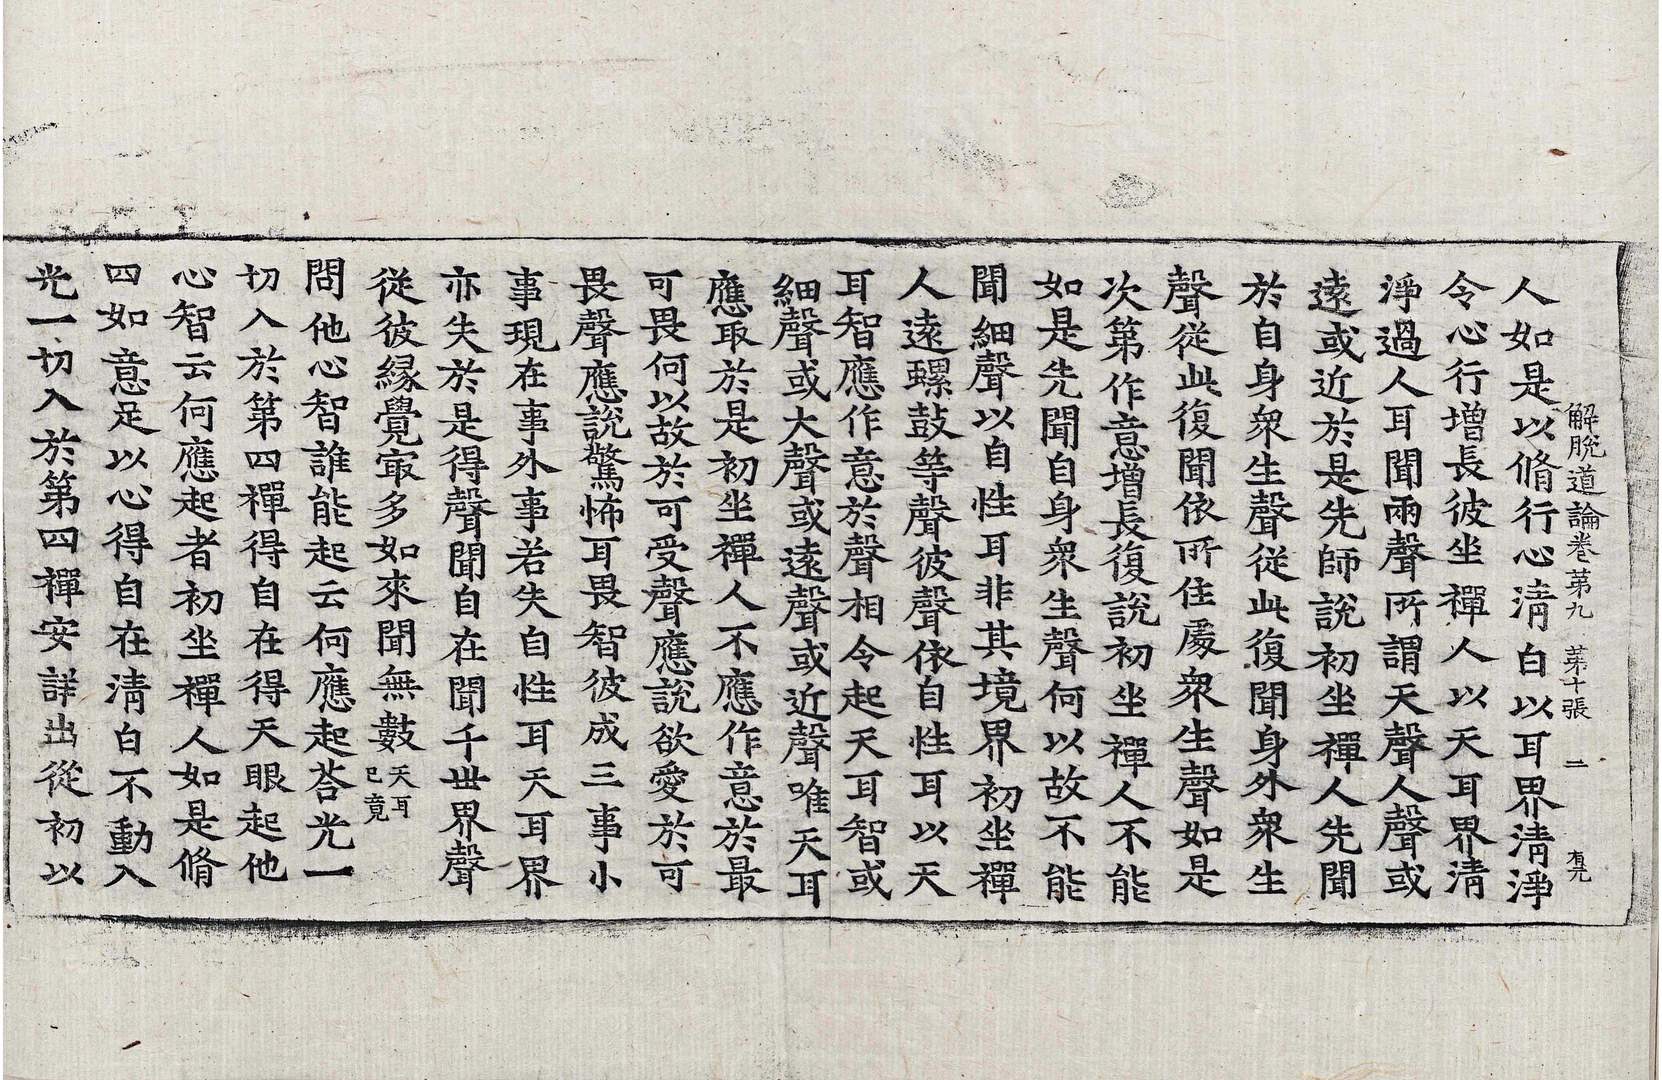 解脫道論卷第九 第十張 二 有元
人如是以脩行心清白以耳界清淨
令心行增長彼坐禪人以天耳界清
淨過人耳聞兩聲所謂天聲人聲或
遠或近於是先師說初坐禪人先聞
於自身衆生聲從此復聞身外衆生
聲從此復聞依所住處衆生聲如是
次第作意增長復說初坐禪人不能
如是先聞自身衆生聲何以故不能
聞細聲以自性耳非其境界初坐禪
人遠螺鼓等聲彼聲依自性耳以天
耳智應作意於聲相令起天耳智或
細聲或大聲或遠聲或近聲唯天耳
應取於是初坐禪人不應作意於最
可畏何以故於可受聲應說欲愛於可
畏聲應說驚怖耳畏智彼成三事小
事現在事外事若失自性耳天耳界
亦失於是得聲聞自在聞千世界聲
從彼緣覺㝡多如來聞無數天耳已竟
問他心智誰能起云何應起荅光一
切入於第四禪得自在得天眼起他
心智云何應起者初坐禪人如是脩
四如意足以心得自在清白不動入
光一切入於第四禪安詳出從初以